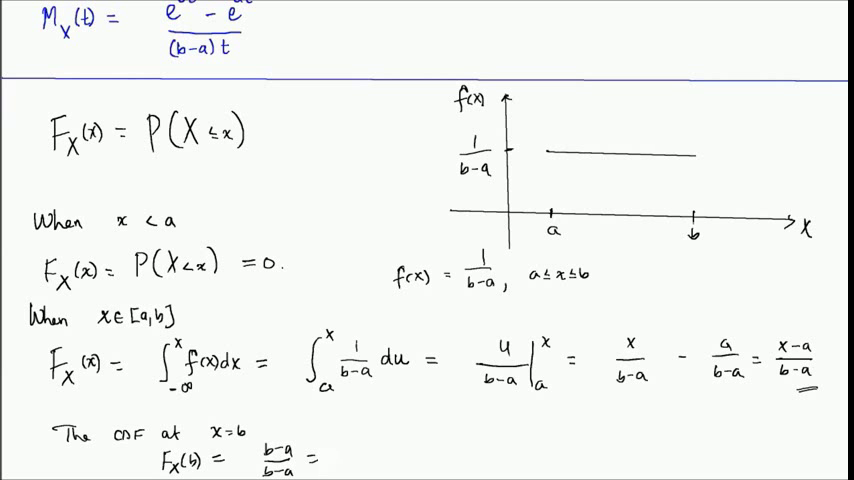 M_X(t) = (e – e) / (b-a)t
f(x)
F_X(x) = P(X ≤ x)
1/(b-a)
a b X
When x < a
F_X(x) = P(X < x) = 0.
f(x) = 1/(b-a), a ≤ x ≤ b
When x ∈ [a,b]
F_X(x) = ∫_{-∞}^{x} f(x)dx = ∫_a^x 1/(b-a) du = u/(b-a) |_a^x = x/(b-a) - a/(b-a) = (x-a)/(b-a)
The CDF at x=b
F_X(b) = (b-a)/(b-a) =